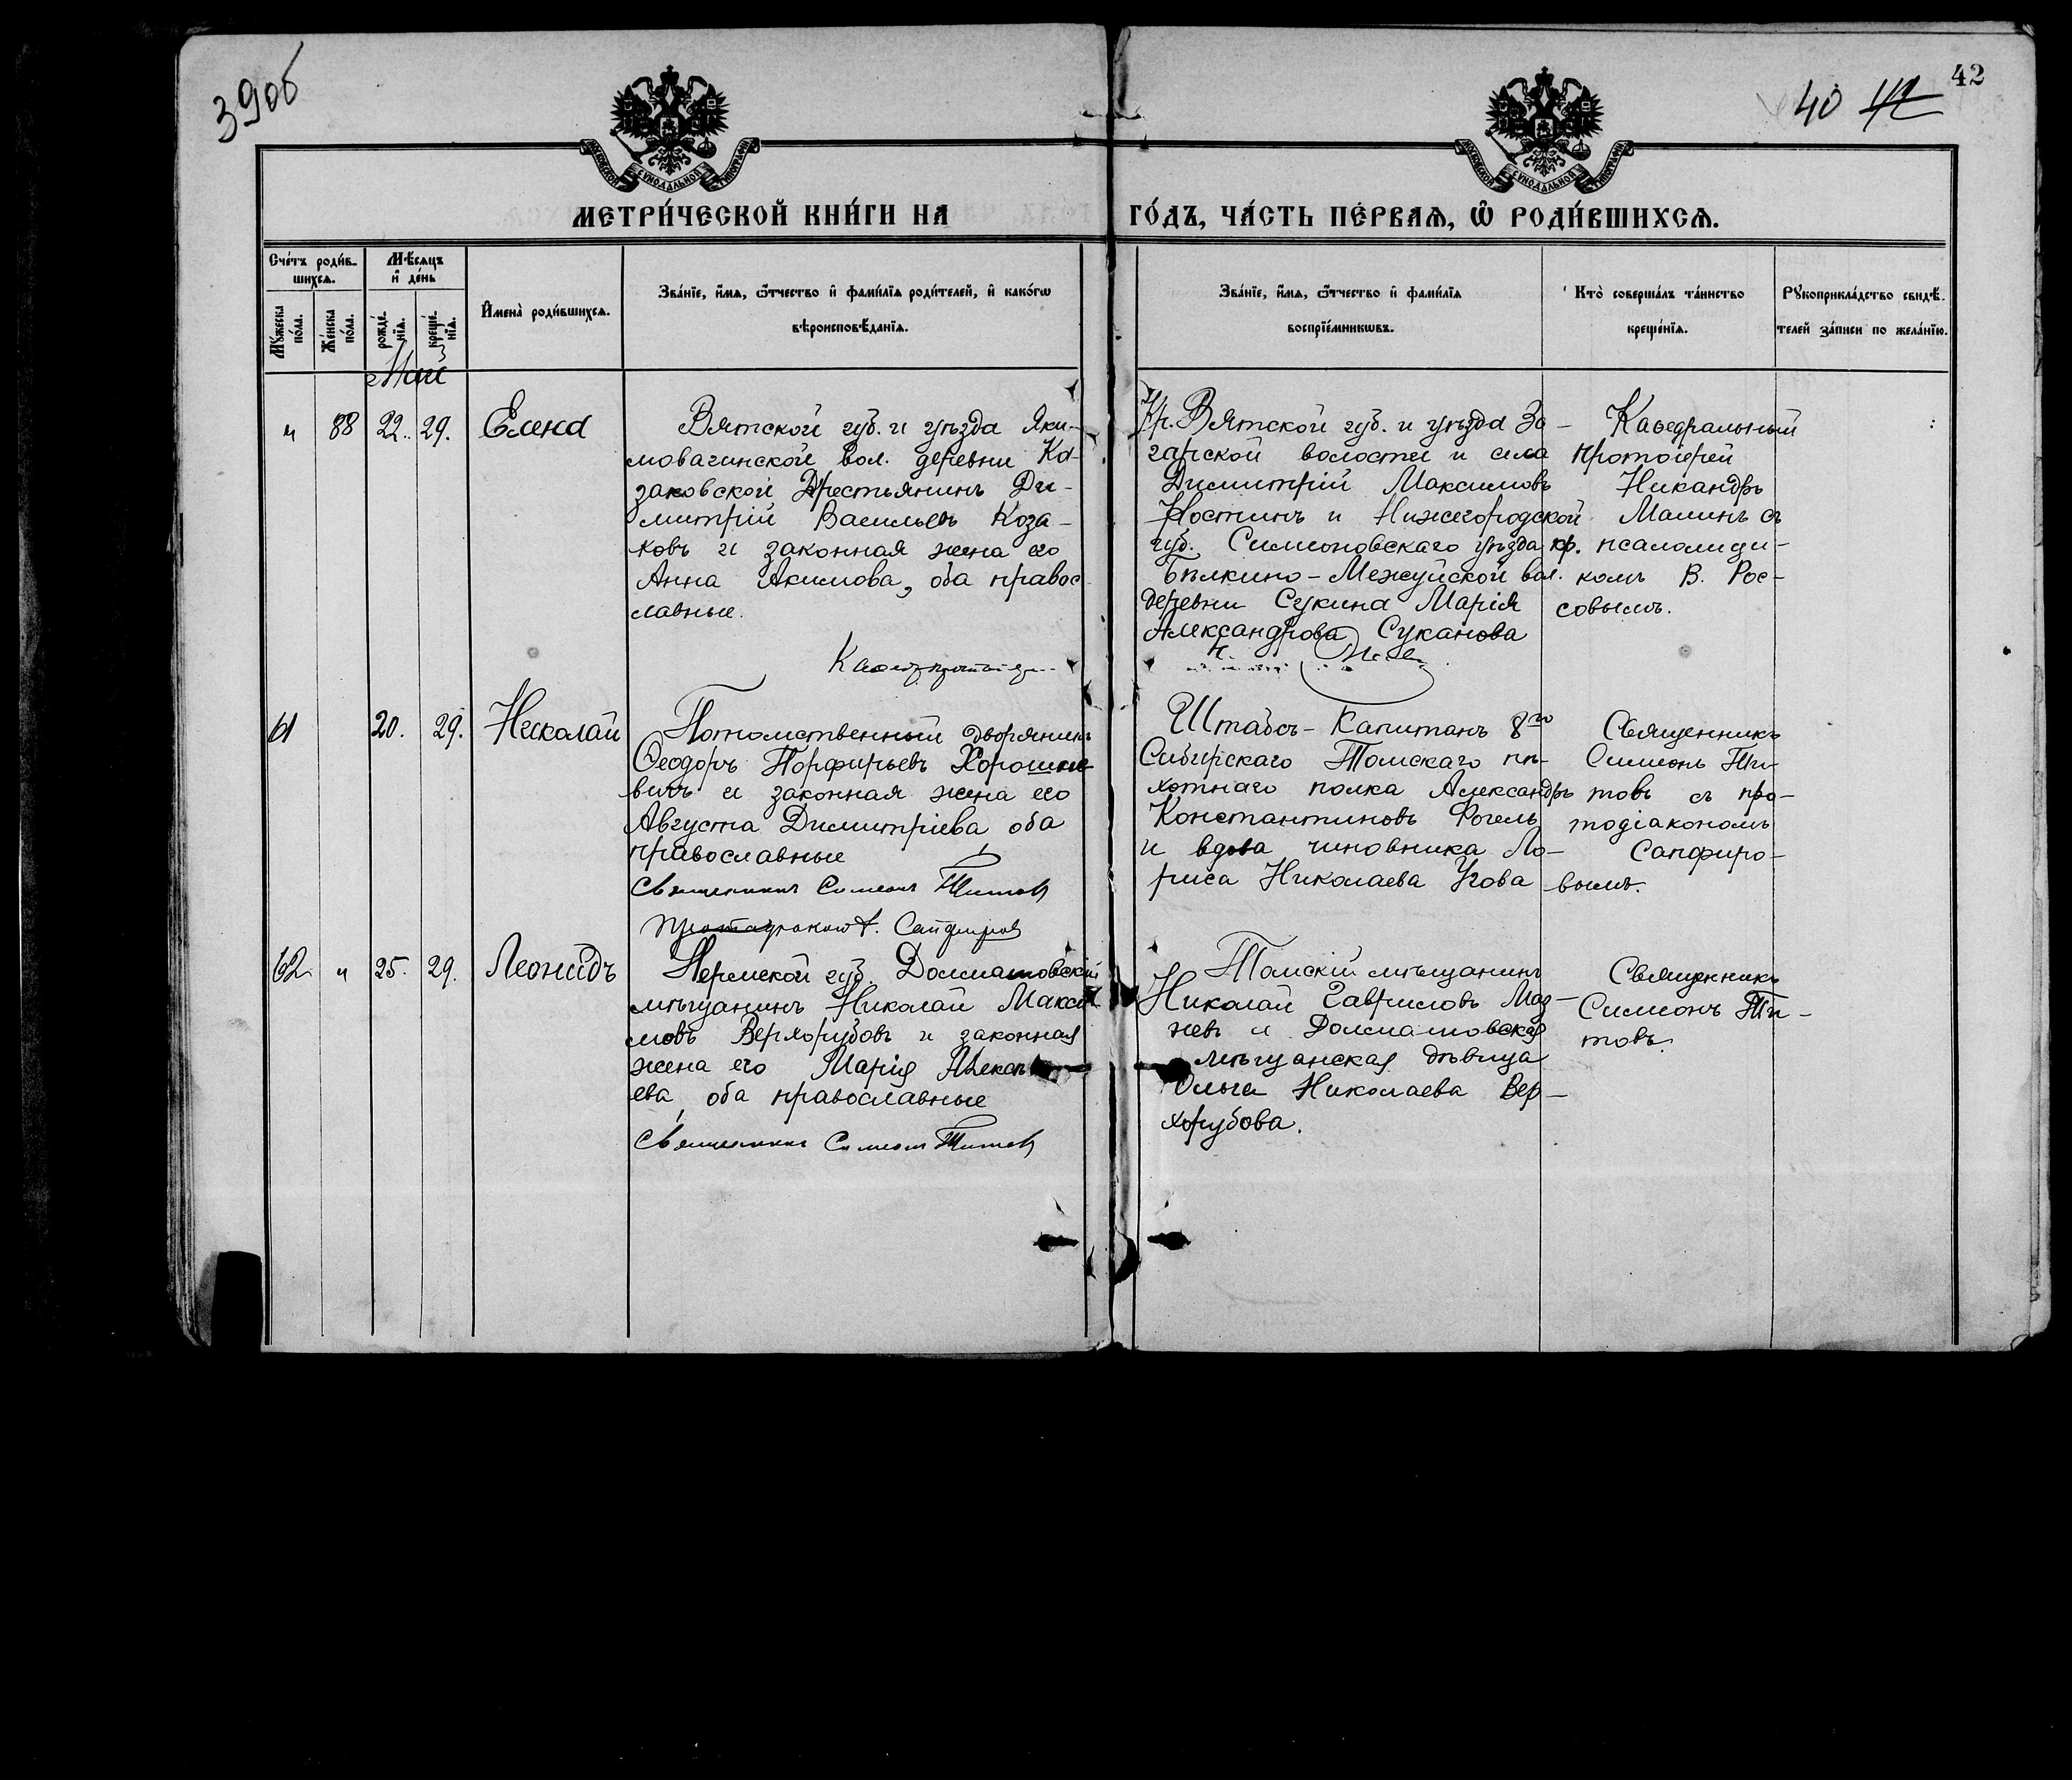 39об
42
40 42
МОСКОВСКОЙ СУНОДАЛЬНОЙ ТИПОГРАФІИ
МОСКОВСКОЙ СУНОДАЛЬНОЙ ТИПОГРАФІИ
МЕТРИ́ЧЕСКОЙ КНИ́ГИ НА
ГО́ДЪ, ЧА́СТЬ ПЕ́РВАѦ, Ѡ҆ РОДИ́ВШИХСѦ.
Сче́тъ роди́в-
шихсѧ.
Мѣ́сѧцъ
и҆ де́нь
Мꙋ́жеска
по́ла.
Же́нска
по́ла.
рожде́-
нїѧ.
креще́-
нїѧ.
И҆мена̀ роди́вшихсѧ.
Зва́нїе, и҆́мѧ, ѻ҆́тчество и҆ фами́лїѧ роди́телей, и҆ како́гѡ
вѣроисповѣ́данїѧ.
Зва́нїе, и҆́мѧ, ѻ҆́тчество и҆ фами́лїѧ
воспрїе́мникѡвъ.
Кто̀ соверша́лъ та́инство
креще́нїѧ.
Рꙋкоприкла́дство свидѣ́-
телей за́писи по жела́нїю.
Май
„ 88 22. 29. Елена
Вятской губ. и уѣзда Яки-
мовагинской вол. деревни Ка-
заковской Крестьянинъ Ди-
митрій Васильевъ Коза-
ковъ и законная жена его
Анна Акимова, оба правос-
лавные.
Кр. Вятской губ. и уѣзда За-
гарской волости и села
Димитрій Максимовъ
Костинъ и Нижегородской
губ. Симоновскаго уѣзда кр.
Бѣлкино-Межуйской вол.
деревни Сукина Марія
Александрова Суканова
Каѳедральный
протоіерей
Никандръ
Малинъ съ
псаломщи-
комъ В. Рос-
совымъ.
61 20. 29. Николай
Потомственный дворянинъ
Ѳеодоръ Порфирьевъ Хорошке-
вичъ и законная жена его
Августа Димитріева оба
православные
Священникъ Симеонъ Титовъ
Протодіаконъ А. Сапфировъ
Штабсъ-Капитанъ 8го
Сибирскаго Томскаго пѣ-
хотнаго полка Александръ
Константиновъ Фогель
и вдова чиновника Ло-
риса Николаева Угова
Священникъ
Симеонъ Ти-
товъ съ про-
тодіакономъ
Сапфиро-
вымъ.
62 „ 25. 29. Леонидъ
Пермской губ. Долматовскій
мѣщанинъ Николай Макси-
мовъ Верхорубовъ и законная
жена его Марія
ева, оба православные
Священникъ Симеонъ Титовъ
Томскій мѣщанинъ
Николай Гавриловъ Маз-
невъ и Долматовская
мѣщанская дѣвица
Ольга Николаева Вер-
хорубова.
Священникъ
Симеонъ Ти-
товъ.